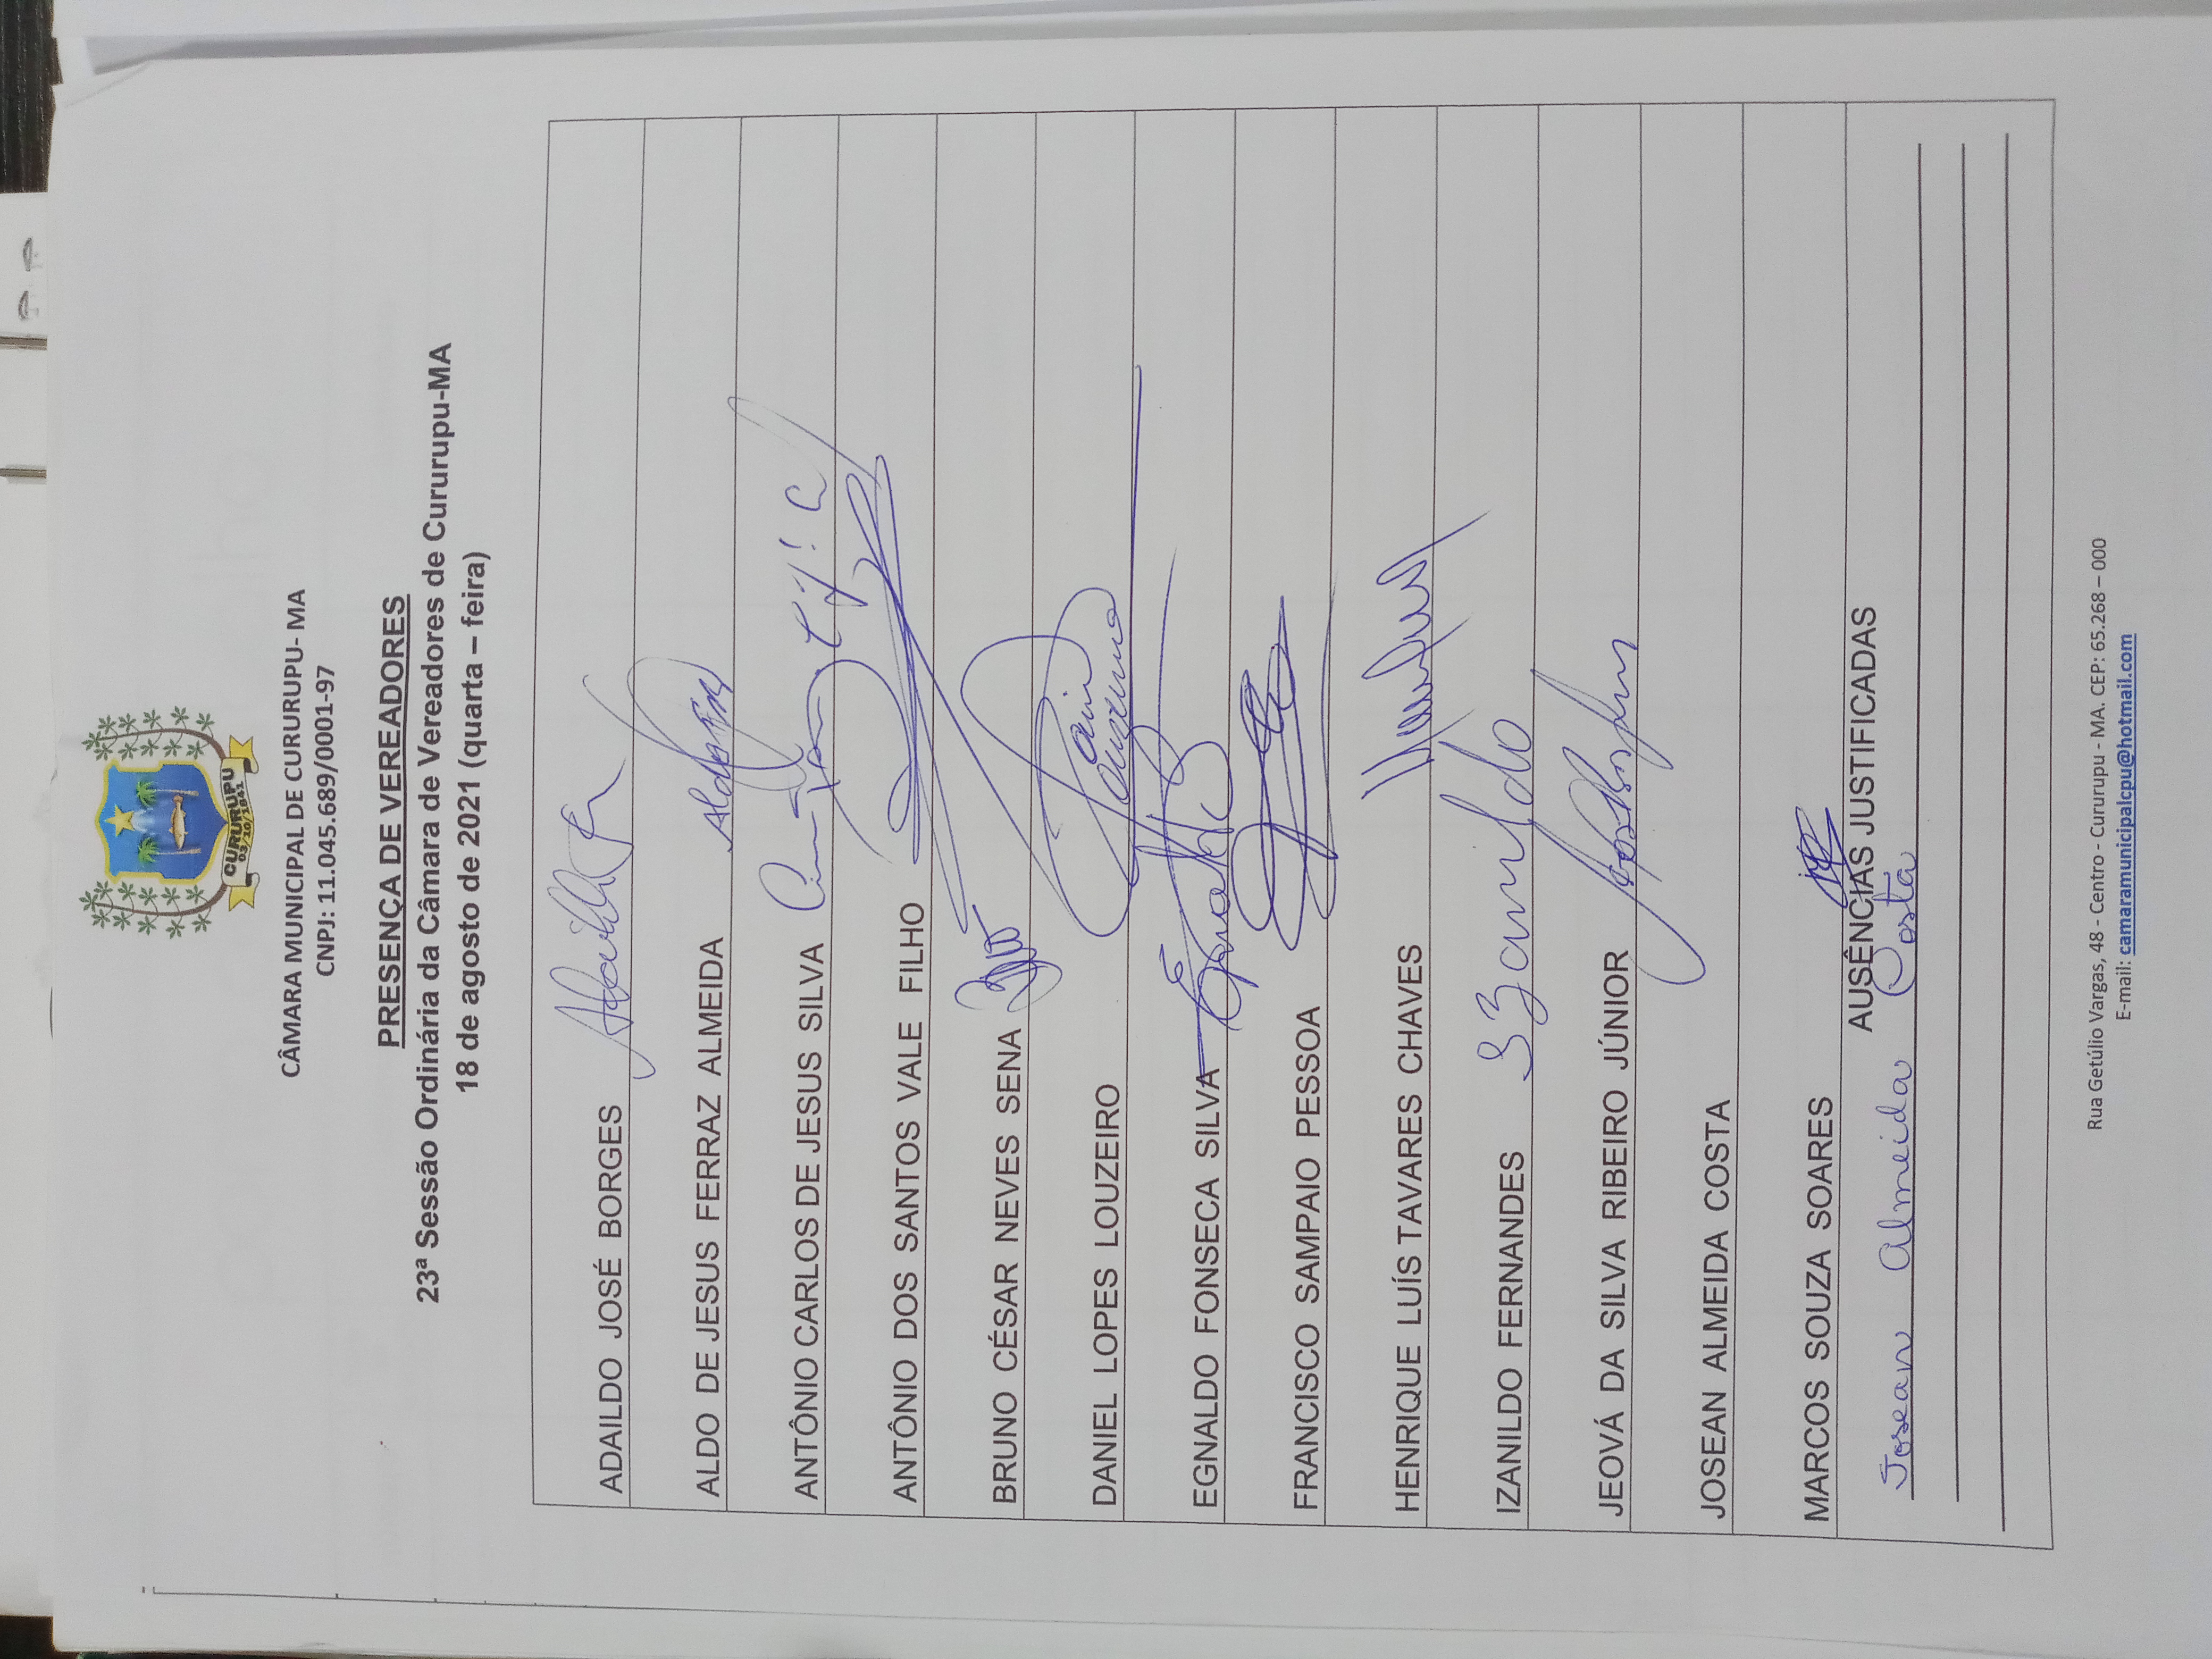 CURURUPU
03/10/1841
CÂMARA MUNICIPAL DE CURURUPU- MA
CNPJ: 11.045.689/0001-97
PRESENÇA DE VEREADORES
23ª Sessão Ordinária da Câmara de Vereadores de Cururupu-MA
18 de agosto de 2021 (quarta – feira)
ADAILDO JOSÉ BORGES
ALDO DE JESUS FERRAZ ALMEIDA
ANTÔNIO CARLOS DE JESUS SILVA
ANTÔNIO DOS SANTOS VALE FILHO
BRUNO CÉSAR NEVES SENA
DANIEL LOPES LOUZEIRO
EGNALDO FONSECA SILVA
FRANCISCO SAMPAIO PESSOA
HENRIQUE LUÍS TAVARES CHAVES
IZANILDO FERNANDES Izanildo
JEOVÁ DA SILVA RIBEIRO JÚNIOR
JOSEAN ALMEIDA COSTA
MARCOS SOUZA SOARES
AUSÊNCIAS JUSTIFICADAS
Josean Almeida Costa
Rua Getúlio Vargas, 48 - Centro - Cururupu - MA. CEP: 65.268 – 000
E-mail: camaramunicipalcpu@hotmail.com